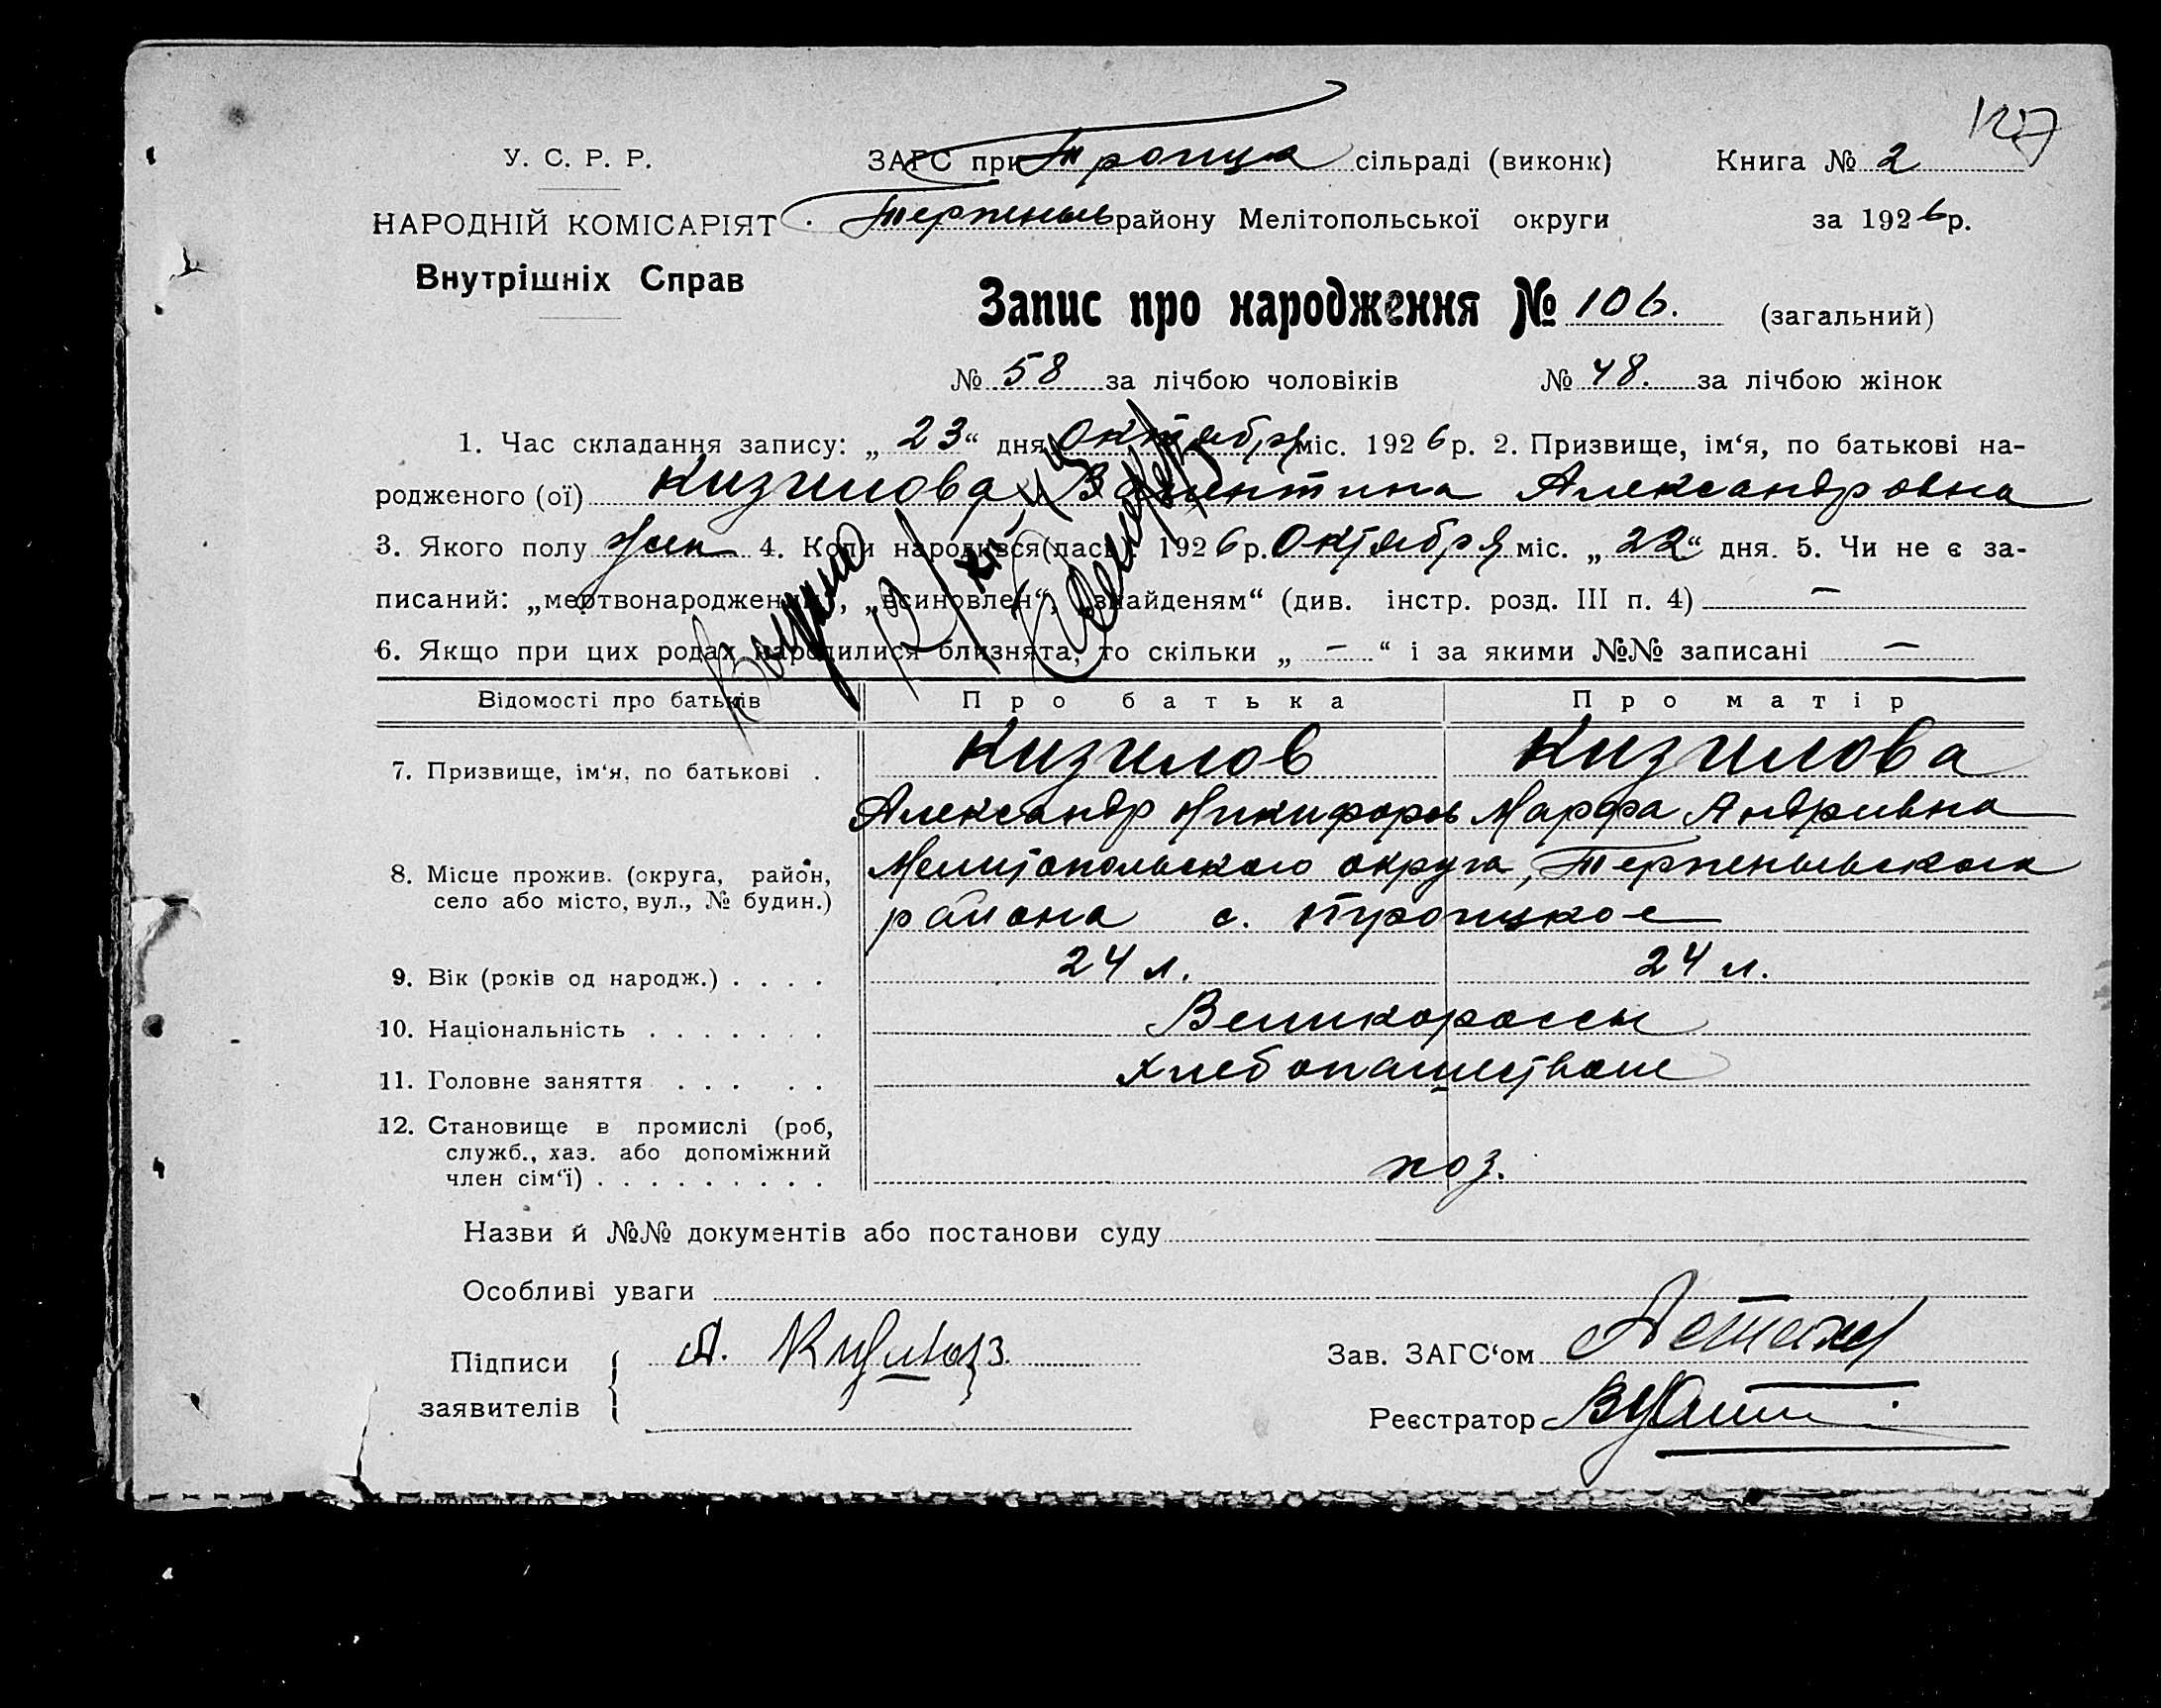 127
У. С. Р. Р.
ЗАГС при Троицка сільраді (виконк) Книга № 2
НАРОДНІЙ КОМІСАРІЯТ Терпеньев району Мелітопольської округи за 1926 р.
Внутрішніх Справ
Запис про народження № 106. (загальний)
№ 58 за лічбою чоловіків № 48. за лічбою жінок
1. Час складання запису: „ 23 “ дня Октября міс. 1926 р. 2. Призвище, ім‘я, по батькові на-
родженого (ої) Кизилова Валентина Александровна
3. Якого полу жен 4. Коли народився(лась): 1926 р. Октября міс. „ 22 “ дня. 5. Чи не є за-
писаний: „мертвонародженим“, „всиновлен“, „знайденям“ (див. інстр. розд. III п. 4) —
6. Якщо при цих родах народилися близнята, то скільки „ — “ і за якими №№ записані —
Відомості про батьків Про батька Про матір
7. Призвище, ім‘я, по батькові . Кизилов Кизилова
Александр Никифоров Марфа Андривна
8. Місце прожив. (округа, район, Мелитопольского округа, Терпеньевского
село або місто, вул., № будин.) района с. Троицкое
9. Вік (років од народж.) . . . . 24 л. 24 л.
10. Національність . . . . . . . Великороссы
11. Головне заняття . . . . . Хлебопашество
12. Становище в промислі (роб,
служб., хаз. або допоміжний
член сім‘ї) . . . . . . . . . хоз.
Назви й №№ документів або постанови суду
Особливі уваги
Підписи А. Зав. ЗАГС‘ом
заявителів Реєстратор